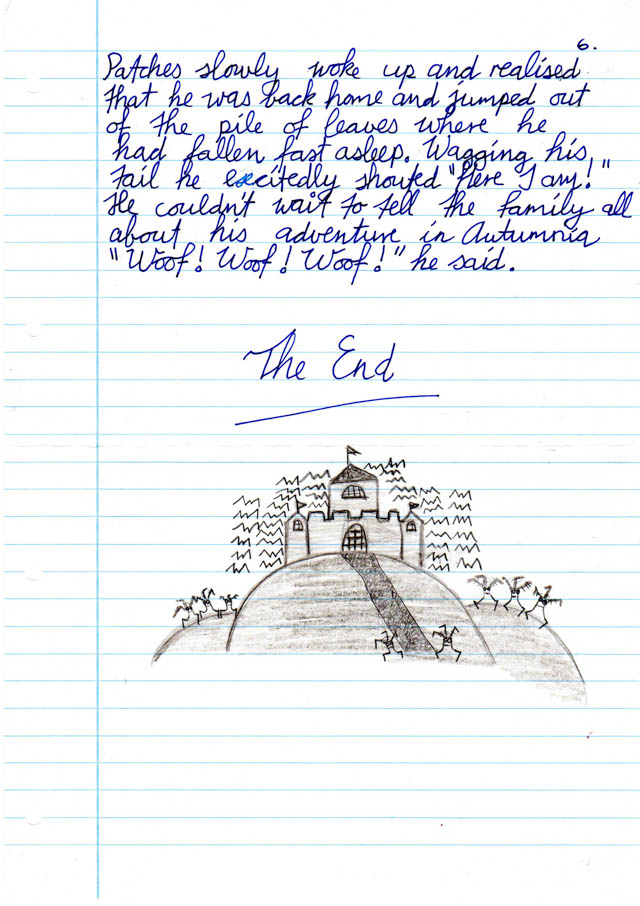 6.
Patches slowly woke up and realised
that he was back home and jumped out
of the pile of leaves where he
had fallen fast asleep. Wagging his
tail he excitedly shouted "Here I am!"
He couldn't wait to tell the family all
about his adventure in Autumnia
"Woof! Woof! Woof!" he said.
The End